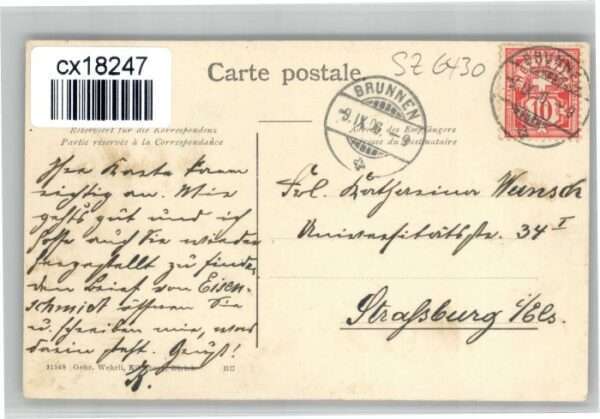 cx18247
Carte postale.
SZ 6430
BRUNNEN
-9.IX.06.-9
BRUNNEN
10
Reserviert für die Korrespondenz
Partie réservée à la Correspondance
des Empfängers
du Destinataire
Ihre Karte kam
richtig an. Mir
geht's gut und ich
hoffe auch Sie wieder
hergestellt zu finden,
den Brief von Eisen-
schmidt öffnen Sie
u. schreiben mir, was
darin steht. Gruß!
K.
Frl. Katharina Wunsch
Universitätsstr. 34 I
Straßburg i/Els.
21568 Gebr. Wehrli,